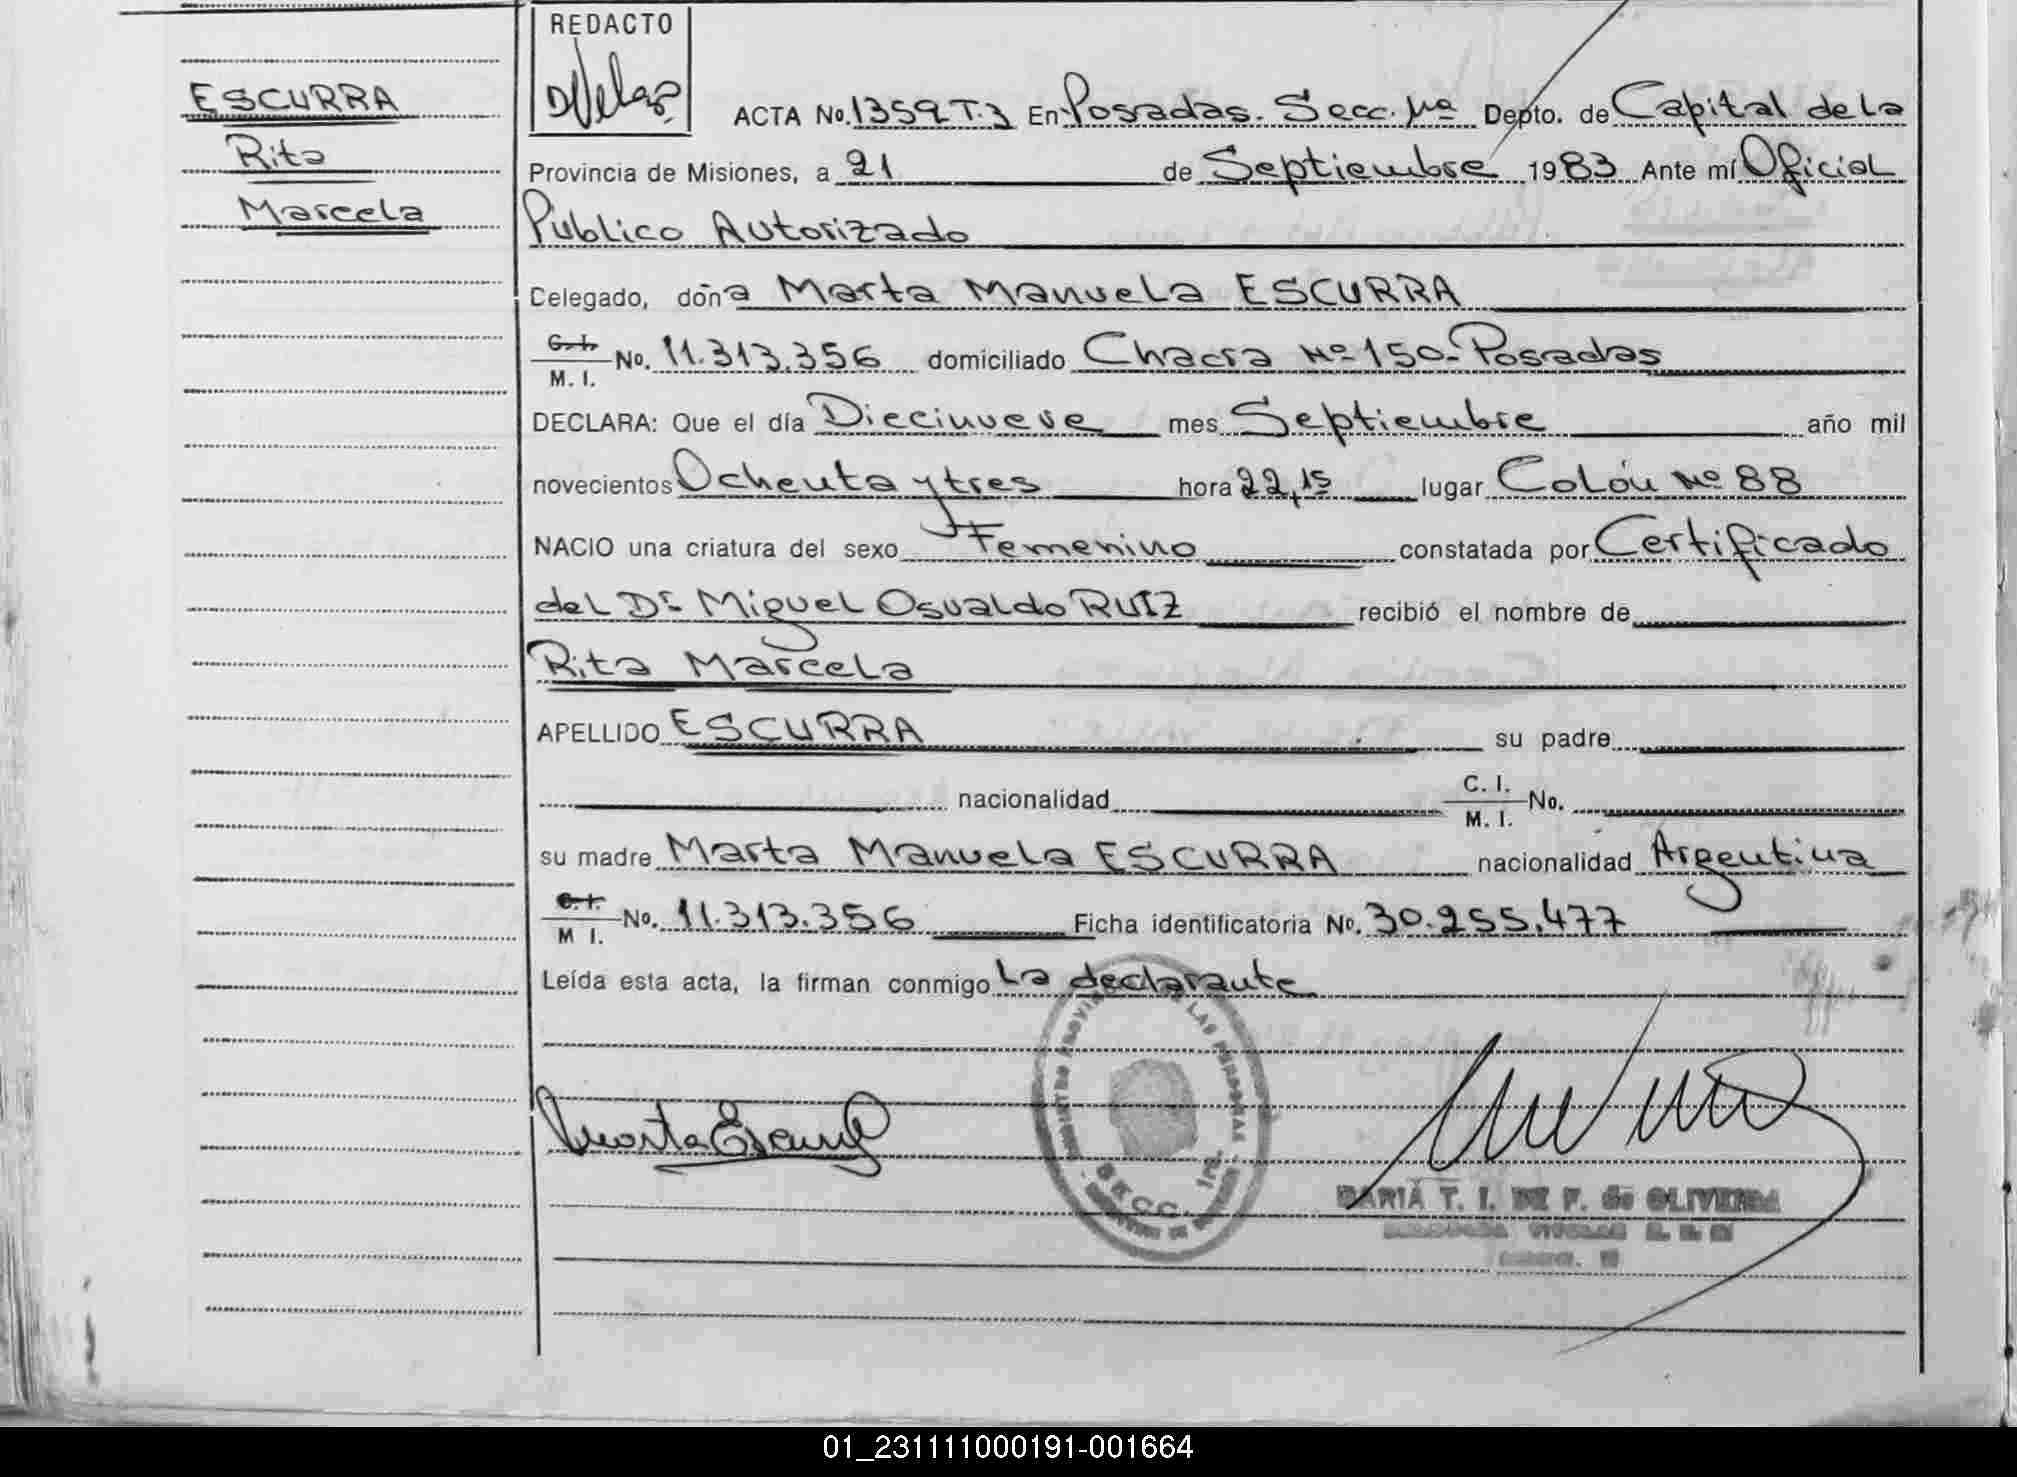 REDACTO
ESCURRA
Rita
Marcela
ACTA No. 1359 T.3 En Posadas. Secc. 1ra Depto. de Capital de la
Provincia de Misiones, a 21 de Septiembre 1983 Ante mí Oficial
Publico Autorizado
Celegado, doña Marta Manuela ESCURRA
C. I.
M. I. No. 11.313.356 domiciliado Chacra No 150-Posadas
DECLARA: Que el día Diecinueve mes Septiembre año mil
novecientos Ochenta y tres hora 22,15 lugar Colón No 88
NACIO una criatura del sexo Femenino constatada por Certificado
del Dr Miguel Osvaldo RUIZ recibió el nombre de
Rita Marcela
APELLIDO ESCURRA su padre
nacionalidad C. I.
M. I. No.
su madre Marta Manuela ESCURRA nacionalidad Argentina
C. I.
M I. No. 11.313.356 Ficha identificatoria No. 30.255.477
Leída esta acta, la firman conmigo La declarante
Marta Escurra
SECC. 1ra.
T. I. DE F. de OLIVEIRA
01_231111000191-001664